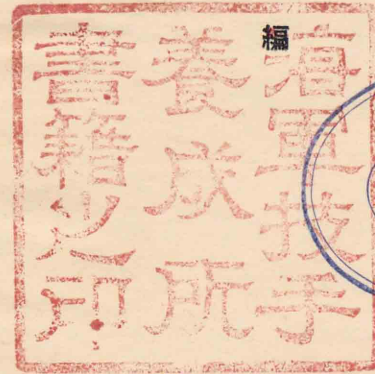 海軍技手
養成所
書籍之印
編